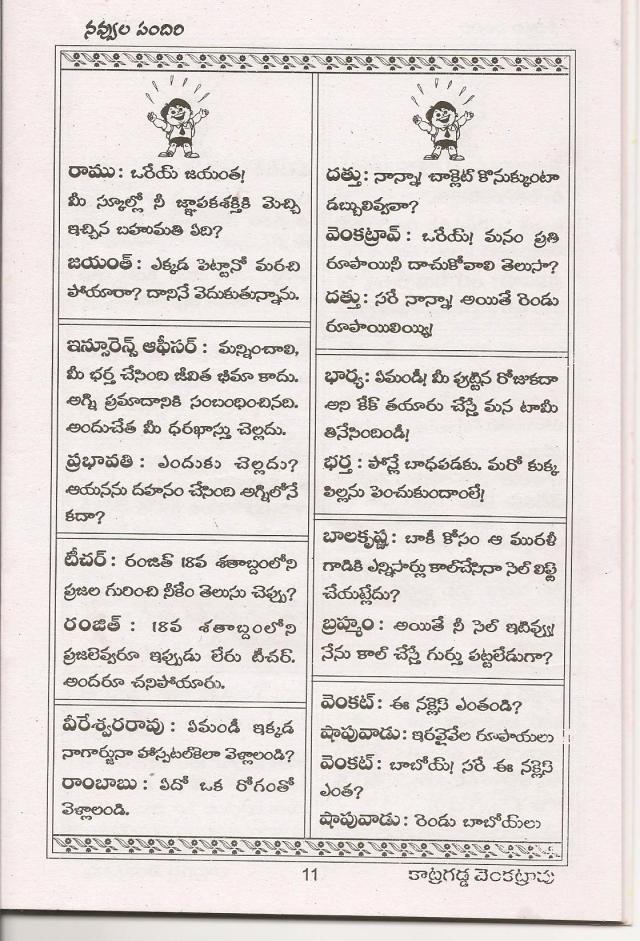 నవ్వుల పందిరి
రాము: ఒరేయ్ జయంత!
మీ స్కూల్లో నీ జ్ఞాపకశక్తికి మెచ్చి
ఇచ్చిన బహుమతి ఏది?
జయంత్: ఎక్కడ పెట్టానో మరచి
పోయారా? దానినే వెదుకుతున్నాను.
ఇన్సూరెన్స్ ఆఫీసర్ : మన్నించాలి,
మీ భర్త చేసింది జీవిత భీమా కాదు.
అగ్ని ప్రమాదానికి సంబంధించినది.
అందుచేత మీ ధరఖాస్తు చెల్లదు.
ప్రభావతి : ఎందుకు చెల్లదు?
ఆయనను దహనం చేసింది అగ్నిలోనే
కదా?
టీచర్: రంజిత్ 18వ శతాబ్దంలోని
ప్రజల గురించి నీకేం తెలుసు చెప్పు?
రంజిత్ : 18వ శతాబ్దంలోని
ప్రజలెవ్వరూ ఇప్పుడు లేరు టీచర్.
అందరూ చనిపోయారు.
వీరేశ్వరరావు : ఏమండీ ఇక్కడ
నాగార్జునా హాస్పటల్‌కెలా వెళ్లాలండి?
రాంబాబు: ఏదో ఒక రోగంతో
వెళ్లాలండి.
దత్తు: నాన్నా! చాక్లెట్ కొనుక్కుంటా
డబ్బులివ్వవా?
వెంకట్రావ్: ఒరేయ్! మనం ప్రతి
రూపాయినీ దాచుకోవాలి తెలుసా?
దత్తు: సరే నాన్నా! అయితే రెండు
రూపాయిలియ్యి!
భార్య: ఏమండీ! మీ పుట్టిన రోజుకదా
అని కేక్ తయారు చేస్తే మన టామీ
తినేసిందిండీ!
భర్త: పోన్లే బాధపడకు. మరో కుక్క
పిల్లను పెంచుకుందాంలే!
బాలకృష్ణ: బాకీ కోసం ఆ మురళీ
గాడికి ఎన్నిసార్లు కాల్‌చేసినా సెల్ లిఫ్ట్
చేయట్లేదు?
బ్రహ్మం: అయితే నీ సెల్ ఇటివ్వు!
నేను కాల్ చేస్తే గుర్తు పట్టలేడుగా?
వెంకట్: ఈ నక్లెస్ ఎంతండి?
షాపువాడు: ఇరవైవేల రూపాయలు
వెంకట్: బాబోయ్! సరే ఈ నక్లెస్
ఎంత?
షాపువాడు: రెండు బాబోయ్‌లు
11
కాట్రగడ్డ వెంకట్రావు